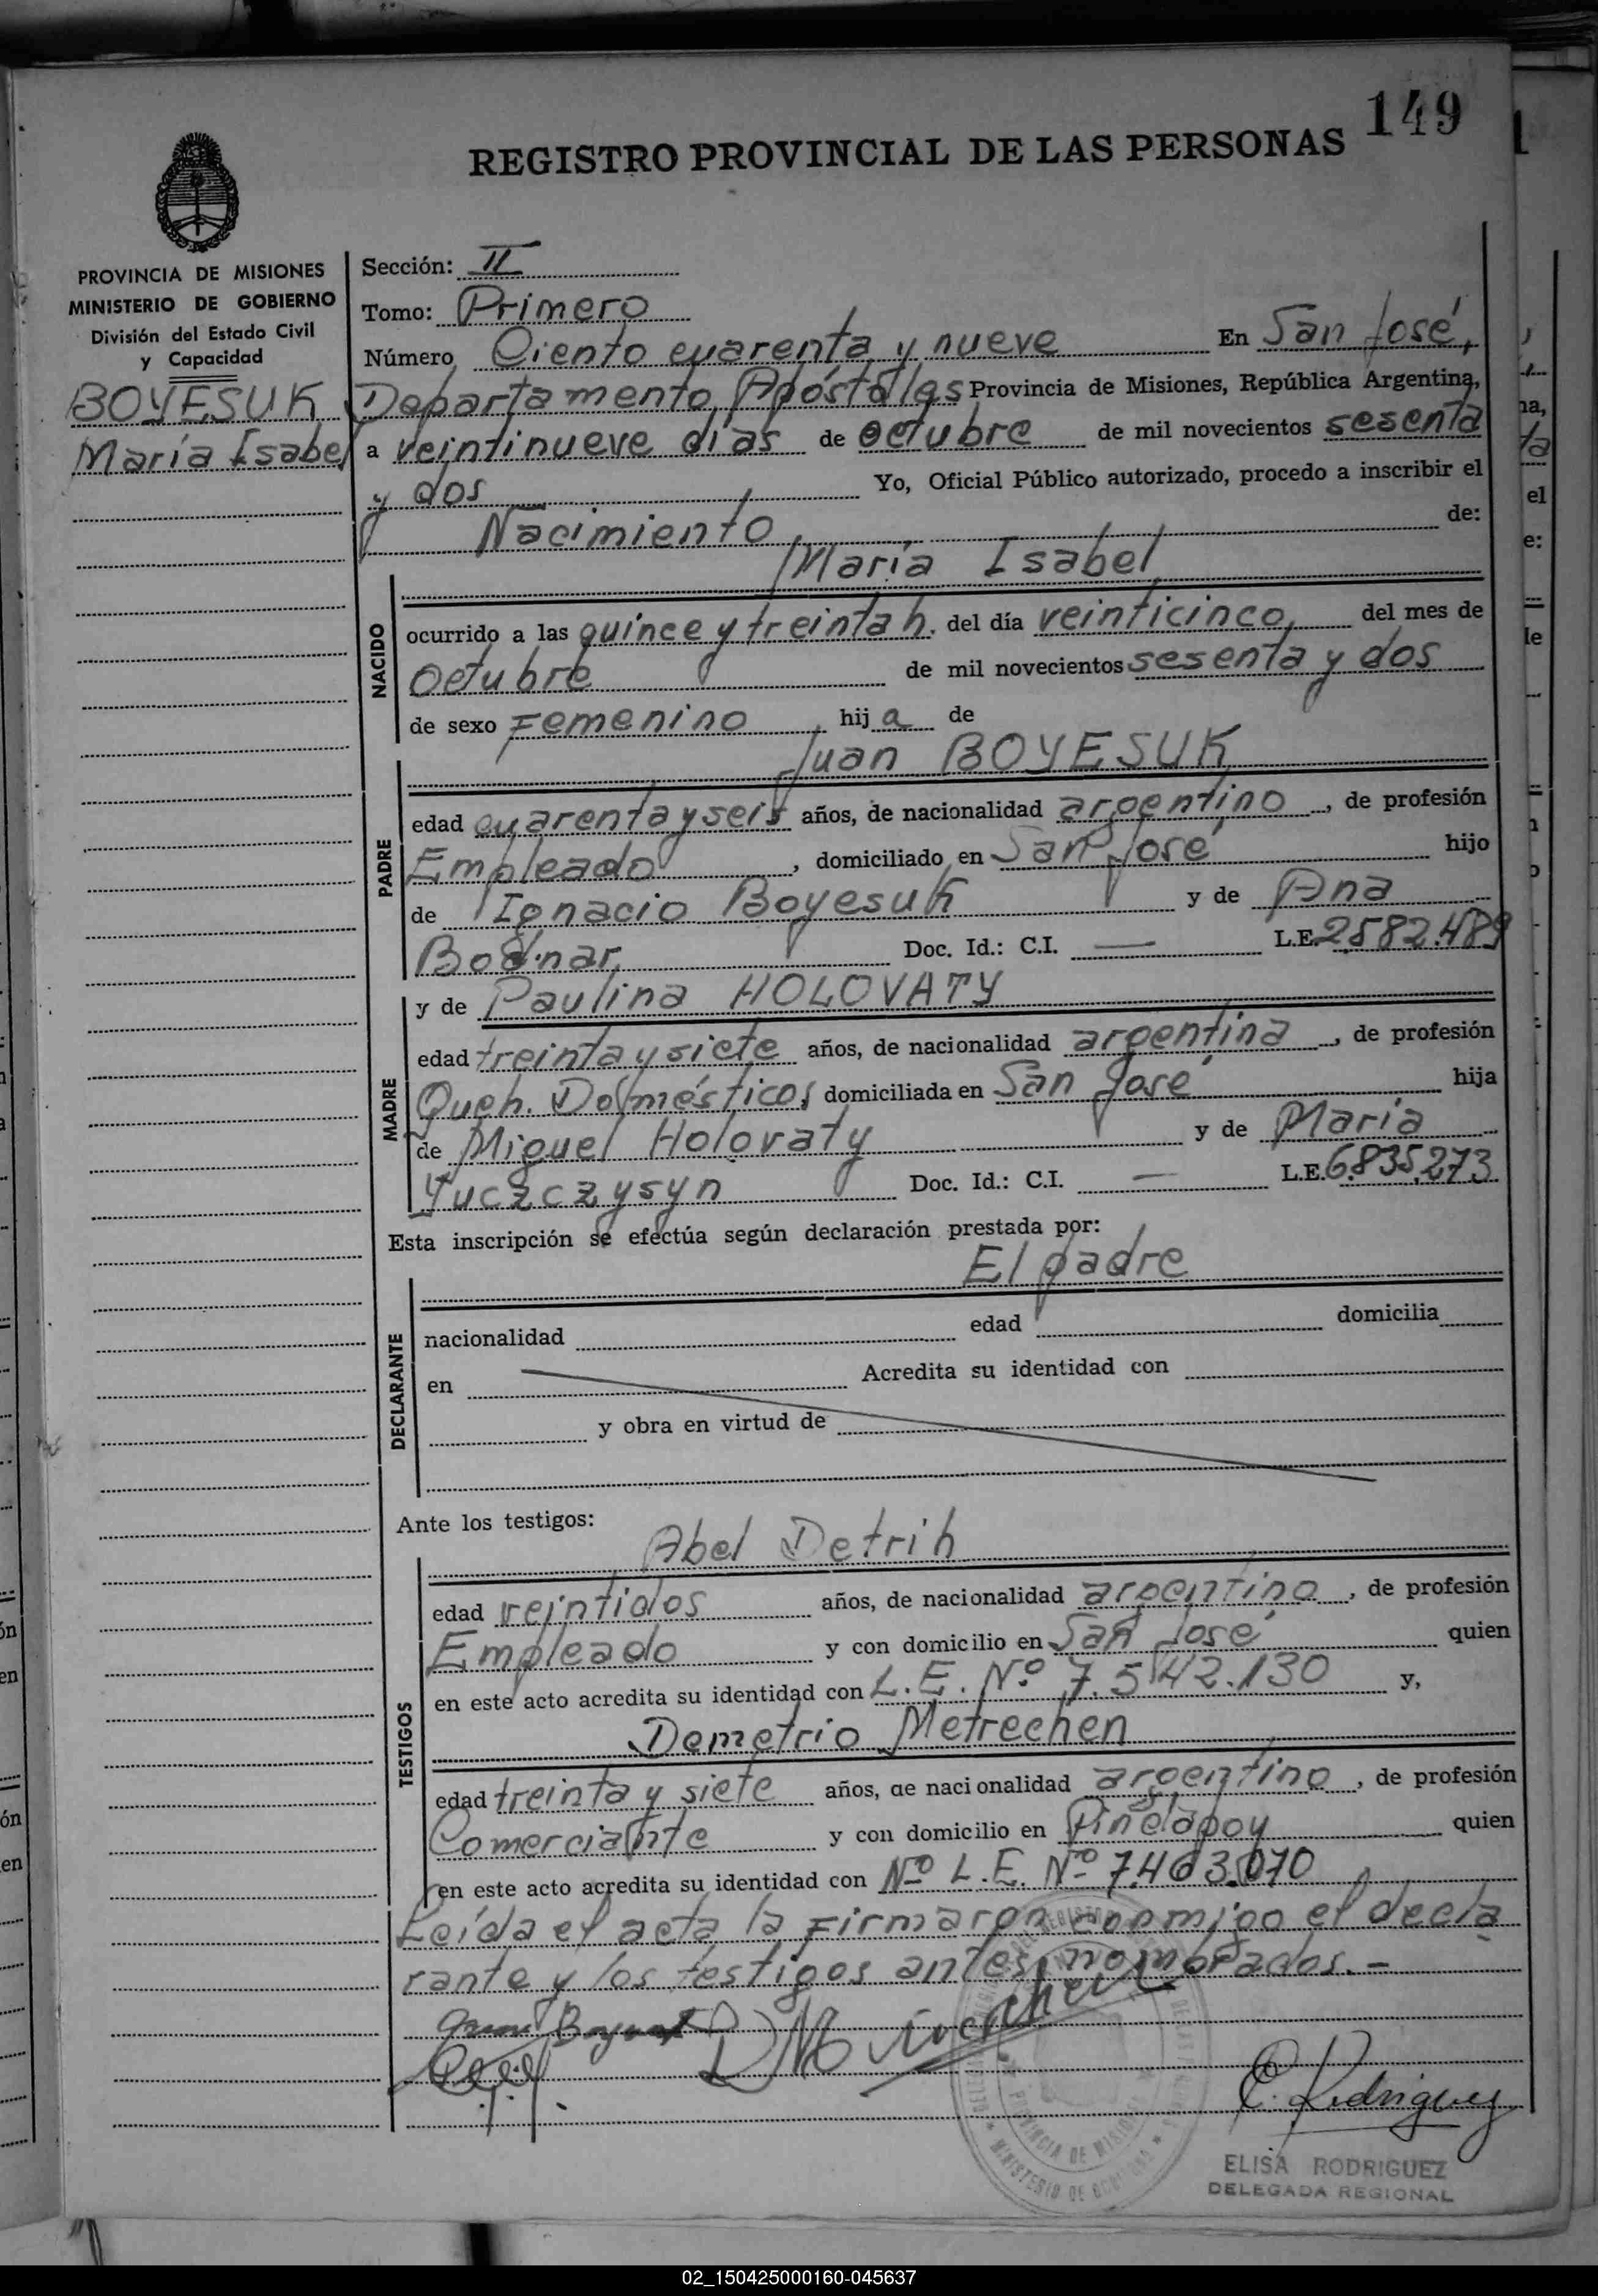 149
REGISTRO PROVINCIAL DE LAS PERSONAS
PROVINCIA DE MISIONES
MINISTERIO DE GOBIERNO
División del Estado Civil
y Capacidad
BOYESUK
María Isabel
Sección: II
Tomo: Primero
Número Ciento cuarenta y nueve En San José,
Departamento Apóstoles Provincia de Misiones, República Argentina,
a veintinueve días de octubre de mil novecientos sesenta
y dos Yo, Oficial Público autorizado, procedo a inscribir el
Nacimiento de:
María Isabel
NACIDO
ocurrido a las quince y treinta h. del día veinticinco, del mes de
Octubre de mil novecientos sesenta y dos
de sexo Femenino hij a de
Juan BOYESUK
PADRE
edad cuarenta y seis años, de nacionalidad argentino, de profesión
Empleado, domiciliado en San José hijo
de Ignacio Boyesuk y de Ana
Bodnar Doc. Id.: C.I. — L.E. 2582.489
MADRE
y de Paulina HOLOVATY
edad treinta y siete años, de nacionalidad argentina, de profesión
Queh. Domésticos domiciliada en San José hija
de Miguel Holovaty y de María
Yuczczysyn Doc. Id.: C.I. — L.E. 6.835.273
Esta inscripción se efectúa según declaración prestada por:
El padre
DECLARANTE
nacionalidad edad domicilia
en Acredita su identidad con
y obra en virtud de
Ante los testigos:
Abel Detrih
TESTIGOS
edad veintidos años, de nacionalidad argentino, de profesión
Empleado y con domicilio en San José quien
en este acto acredita su identidad con L.E. Nº 7.542.130 y,
Demetrio Metrechen
edad treinta y siete años, de nacionalidad argentino, de profesión
Comerciante y con domicilio en Pindapoy quien
en este acto acredita su identidad con Nº L.E. Nº 7.463.070
Leída el acta la Firmaron conmigo el decla
rante y los testigos antes nombrados.-
E. Rodriguez
PROVINCIA DE MISIONES
MINISTERIO DE GOBIERNO
ELISA RODRIGUEZ
DELEGADA REGIONAL
02_150425000160-045637